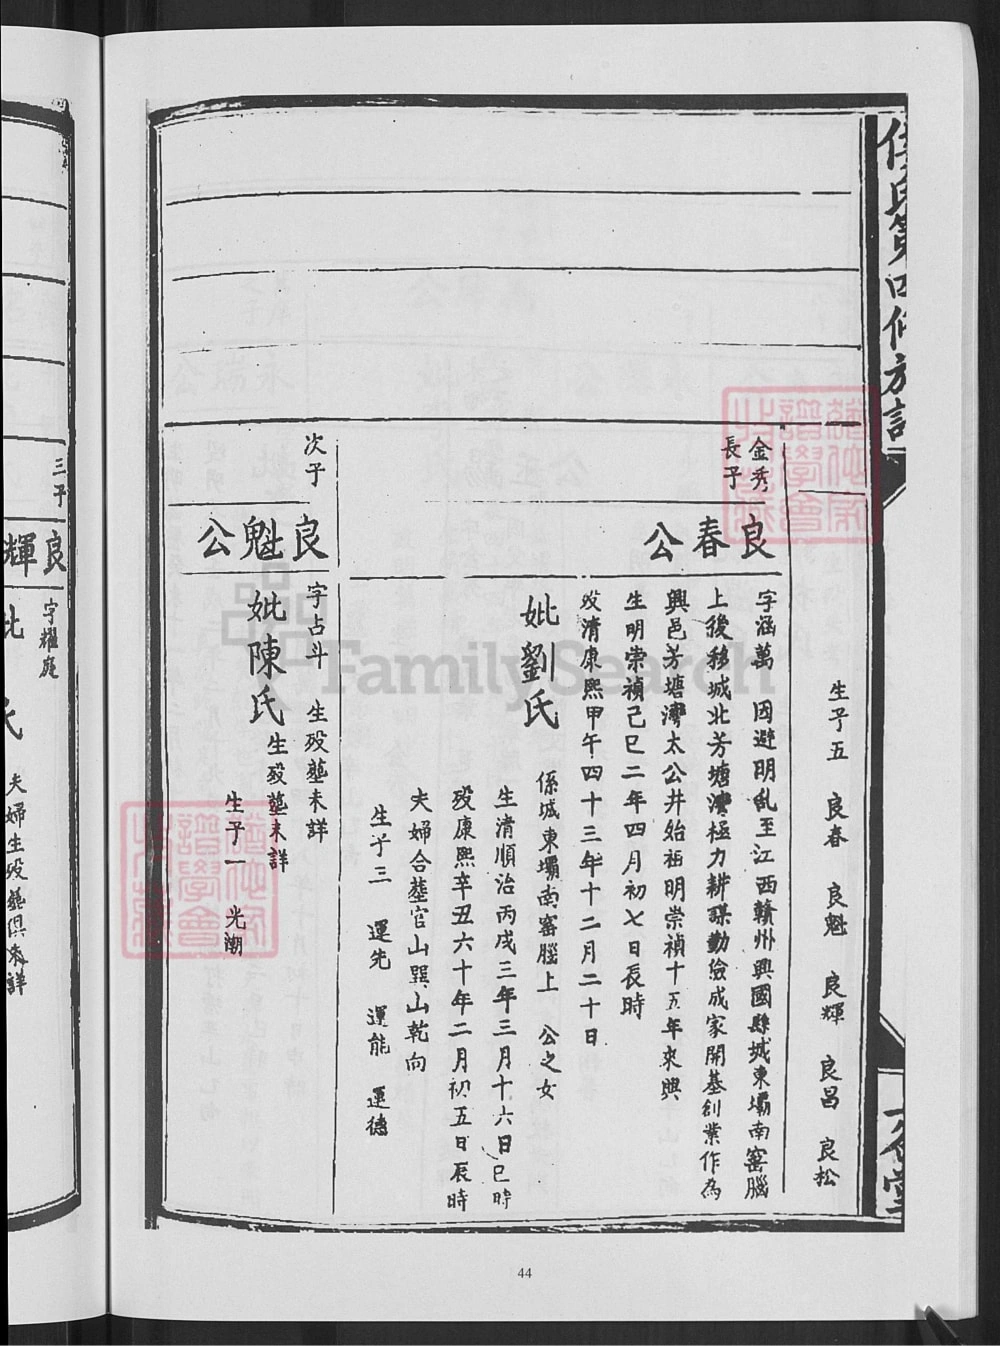 生子五 良春 良魁 良輝 良昌 良松
金秀
長子
良春公
字涵萬 因避明乱至江西贛州興國縣城東壩南窰腦
上後移城北芳塘灣極力耕謀勤儉成家開基創業作為
興邑芳塘灣太公井始祖明崇禎十五年來興
生明崇禎己巳二年四月初七日長時
歿清康熙甲午四十三年十二月二十日
妣劉氏
係城東壩南窰腦上 公之女
生清順治丙戌三年三月十六日巳時
歿康熙辛丑六十年二月初五日辰時
夫婦合塟官山巽山乾向
生子三 運先 運能 運德
次子
良魁公
字占斗 生歿塟未詳
妣陳氏 生歿塟未詳
生子一 光潮
三子
良輝
字耀庭
妣 氏
夫婦生歿塟俱未詳
FamilySearch
44